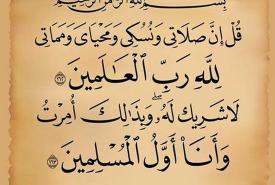 بسم الله الرحمن الرحيم
قُلْ إِنَّ صَلَاتِي وَنُسُكِي وَمَحْيَايَ وَمَمَاتِي
لِلَّهِ رَبِّ الْعَالَمِينَ ١٦٢
لَا شَرِيكَ لَهُ وَبِذَٰلِكَ أُمِرْتُ
وَأَنَا أَوَّلُ الْمُسْلِمِينَ ١٦٣